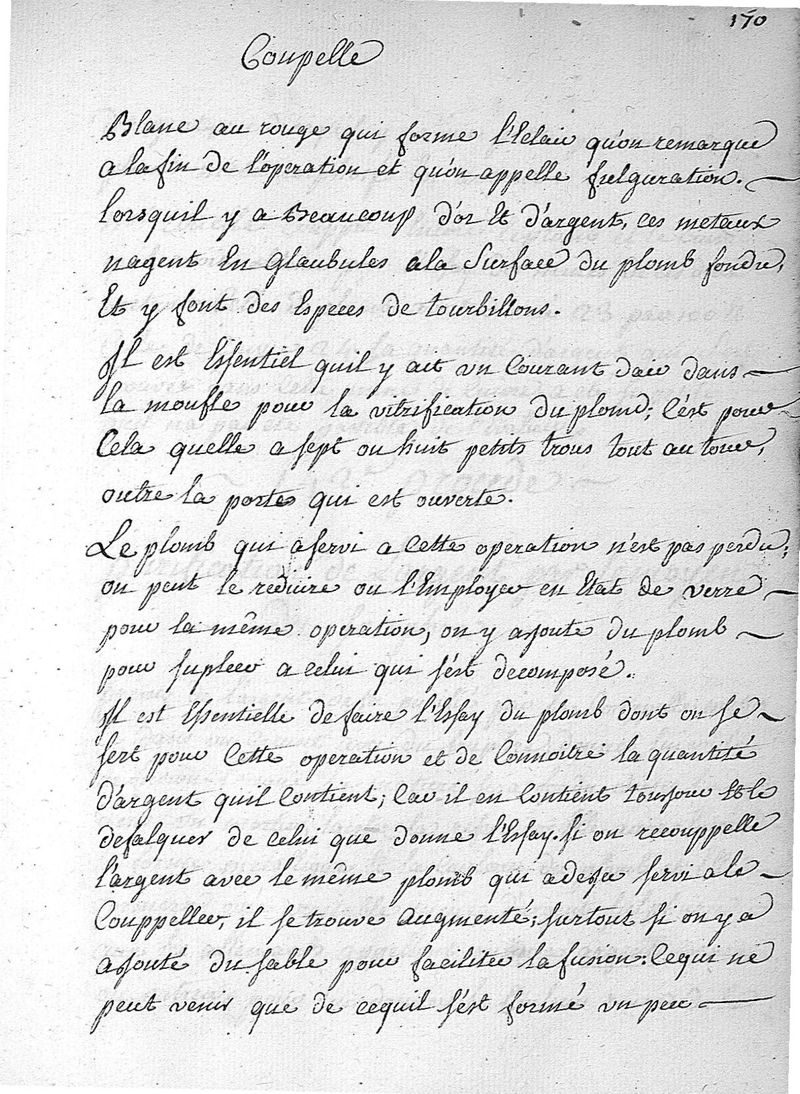 170
Coupelle
Blanc au rouge qui forme l'Eclair qu'on remarque
a la fin de l'operation et qu'on appelle fulguration.
lorsquil y a Beaucoup d'or Et d'argent, ces metaux
nagent En Glaubules a la Surface du plomb fondu,
Et y font des Especes de tourbillons.
Il est Essentiel quil y ait un Courant dair dans
la moufle pour la vitrification du plomb; C'est pour
Cela quelle a sept ou huit petits trous tout au tour,
outre la porte qui est ouverte.
Le plomb qui a servi a Cette operation n'est pas perdu;
on peut le reduire ou l'Employer en Etat de verre
pour la même operation, on y ajoute du plomb
pour supleer a celui qui s'est decomposé.
Il est Essentielle de faire l'Essay du plomb dont on se
sert pour Cette operation et de Connoitre la quantité
d'argent quil Contient; Car il en Contient toujour Et le
defalquer de celui que donne l'Essay. si on recouppelle
l'argent avec le même plomb qui a deja servi a le
Couppeller, il se trouve Augmenté; surtout si on y a
ajouté du sable pour faciliter la fusion. Ce qui ne
peut venir que de cequil s'est formé un peu